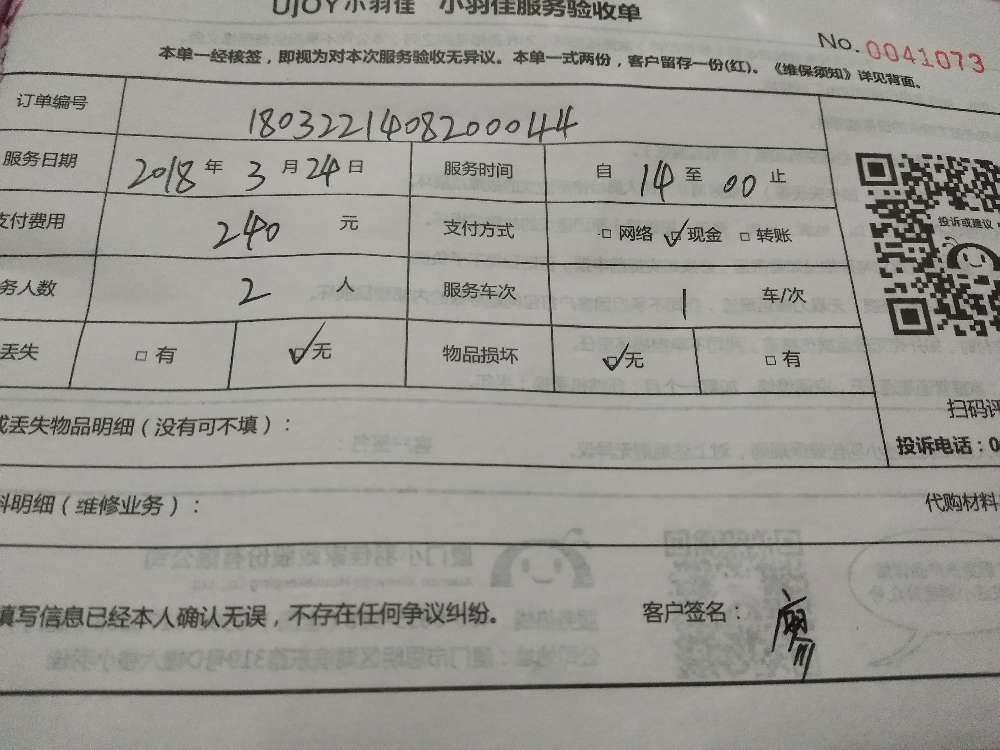 UJOY小羽佳 小羽佳服务验收单
No. 0041073
本单一经核签，即视为对本次服务验收无异议。本单一式两份，客户留存一份(红)。《维保须知》详见背面。
订单编号 18032214082000044
服务日期 2018 年 3 月 24 日 服务时间 自 14 至 00 止
支付费用 240 元 支付方式 □ 网络 ☑ 现金 □ 转账
务人数 2 人 服务车次 1 车/次
丢失 □ 有 ☑ 无 物品损坏 ☑ 无 □ 有
投诉或建议
扫码评
投诉电话：0
或丢失物品明细（没有可不填）：
料明细（维修业务）： 代购材料
填写信息已经本人确认无误，不存在任何争议纠纷。 客户签名：